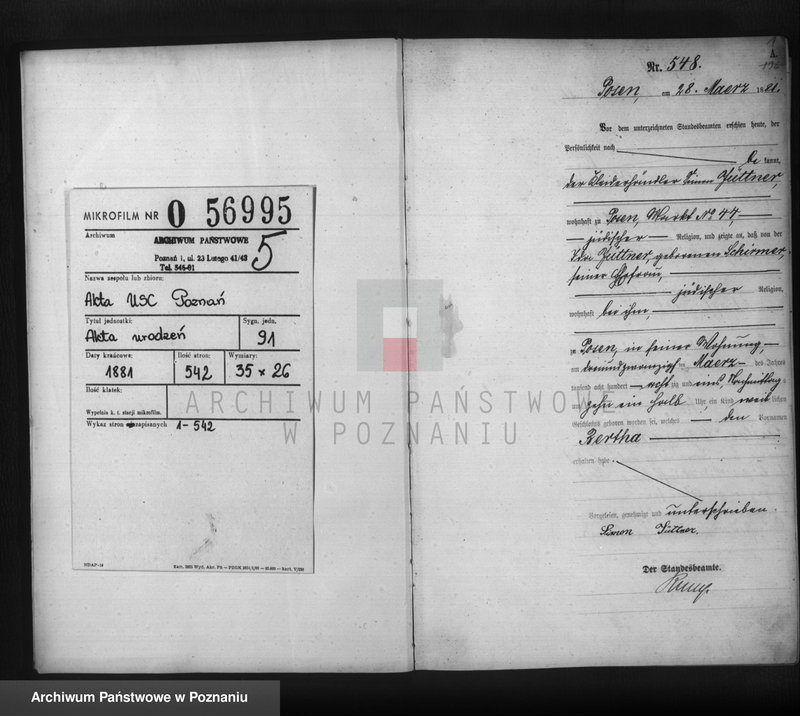 MIKROFILM NR O 56995
Archiwum
ARCHIWUM PAŃSTWOWE
Poznań i, ul. 23 Lutego 41/43
Tel. 546-01
5
Nazwa zespołu lub zbioru:
Akta USC Poznań
Tytuł jednostki:
Sygn. jedn.
Akta urodzeń
91
Daty krańcowe:
Ilość stron:
Wymiary:
1881
542
35 x 26
Ilość klatek:
Wypełnia k. t. stacji mikrofilm.
Wykaz stron zapisanych 1-542
ARCHIWUM PAŃSTWOWE
W POZNANIU
A.
Nr. 548.
Posen, am 28. Maerz 1881.
Vor dem unterzeichneten Standesbeamten erschien heute, der
Persönlichkeit nach
be kannt,
der Kleiderhändler Simon Jüttner,
wohnhaft zu Posen, Markt No 44,
jüdischer Religion, und zeigte an, daß von der
Ida Jüttner, geborenen Schirmer,
seiner Ehefrau,
jüdischer Religion,
wohnhaft bei ihm,
zu Posen, in seiner Wohnung,
am dreiundzwanzigsten Maerz des Jahres
tausend acht hundert acht zig und eins, Nachmittag
um zehn ein halb Uhr ein Kind weib lichen
Geschlechts geboren worden sei, welches den Vornamen
Bertha
erhalten habe.
Vorgelesen, genehmigt und unterschrieben.
Simon Jüttner.
Der Standesbeamte.
Archiwum Państwowe w Poznaniu